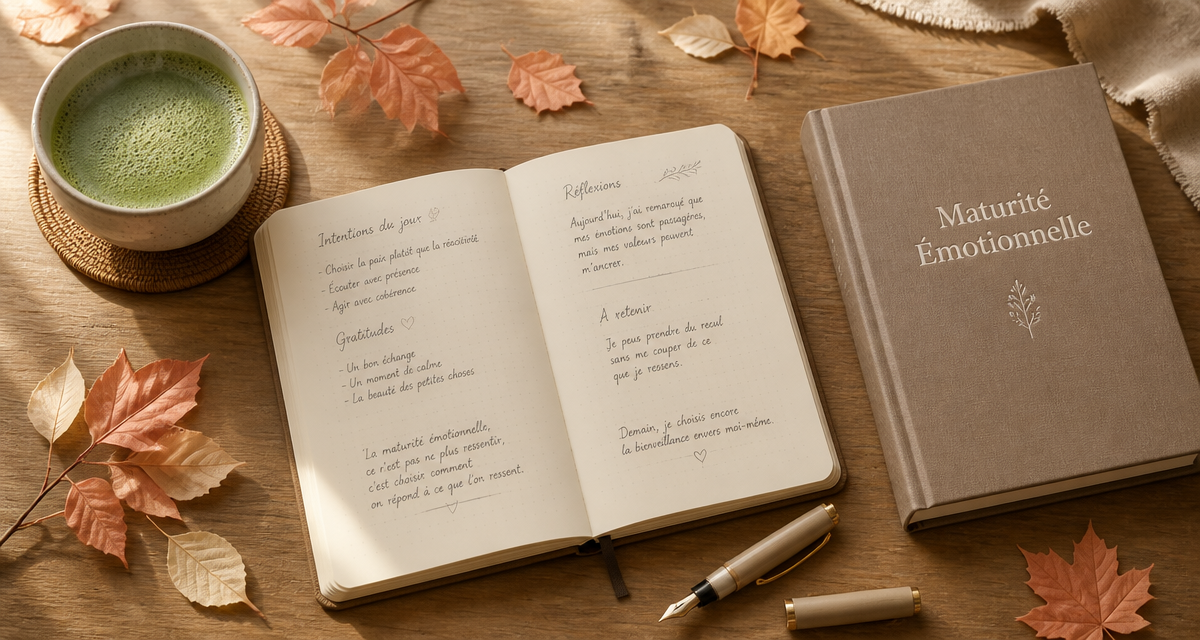 Intentions du jour
- Choisir la paix platôt que la réacitivité
- Écouter avec présence
- Agir avec cohérence
Gratitudes
- Un bon échange
- Un moment de calme
- La beauté des petites choses
La maturité émotionnelle,
ce r'est pas ne plus ressentir,
c'est choisir comment
on répond à ce que l'on ressent.
Réflexions
Aujourd'hui, j'ai remaroyé que
mes émotions sont passagères,
mais mes valeurs peuvent
m'ancrer.
A retenir
Je peus prendre du recul
sans me couper de ce
que je ressens.
Demain, je choisis encore
la bienveillance envers moi-même.
Maturité
Émotionnelle